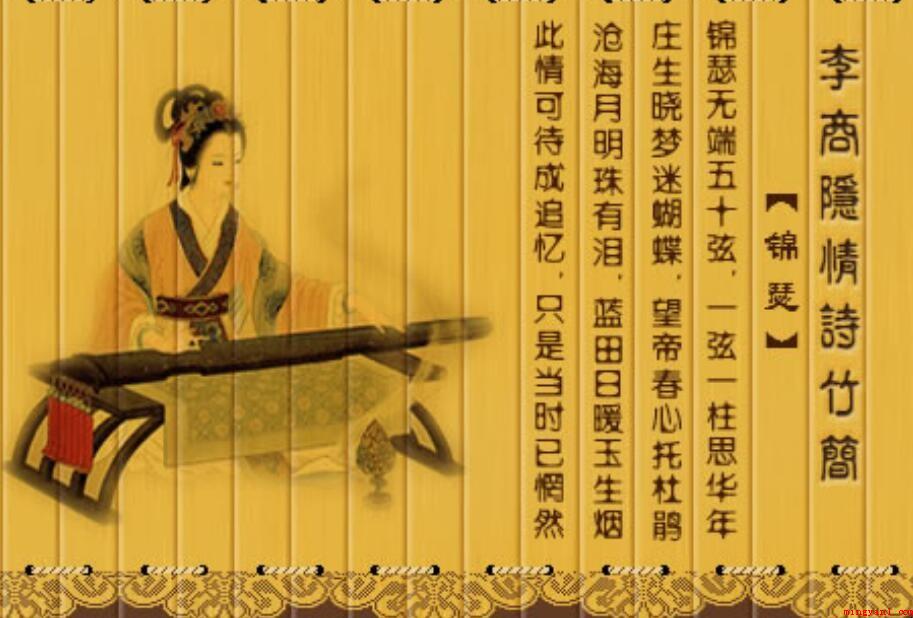 李商隱情詩竹簡
【锦瑟】
锦瑟无端五十弦，一弦一柱思华年
庄生晓梦迷蝴蝶，望帝春心托杜鹃
沧海月明珠有泪，蓝田日暖玉生烟
此情可待成追忆，只是当时已惘然